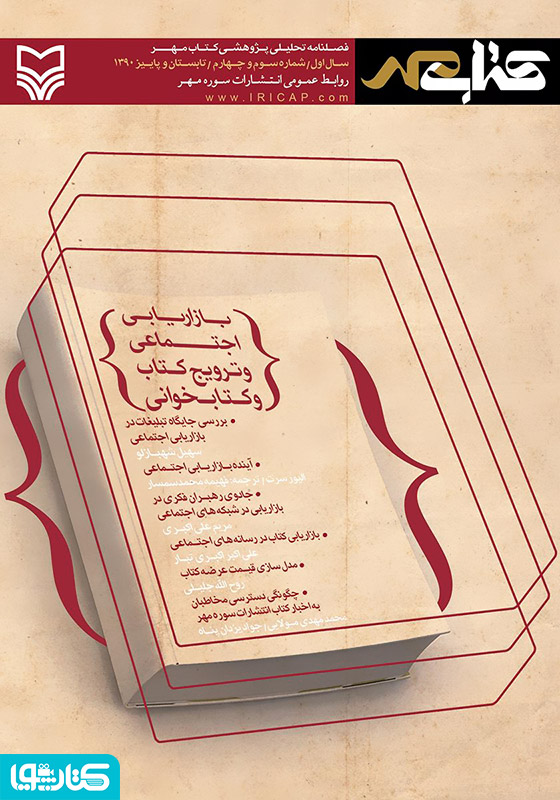 کتاب مهر
فصلنامه تحلیلی پژوهشی کتاب مهر
سال اول / شماره سوم و چهارم / تابستان و پاییز ۱۳۹۰
روابط عمومی انتشارات سوره مهر
www.IRICAP.com
بازاریابی
اجتماعی
و ترویج کتاب
و کتابخوانی
• بررسی جایگاه تبلیغات در
بازاریابی اجتماعی
سهیل شهبازلو
• آینده بازاریابی اجتماعی
الیور سرت / ترجمه: فهیمه محمدسمسار
• جادوی رهبران فکری در
بازاریابی در شبکه های اجتماعی
مریم علی اکبری
• بازاریابی کتاب در رسانه های اجتماعی
علی اکبر اکبری تبار
• مدل سازی قیمت عرضه کتاب
روح الله جلیلی
• چگونگی دسترسی مخاطبان
به اخبار کتاب انتشارات سوره مهر
محمدمهدی مولایی / جواد یزدان پناه
کتابشوپا